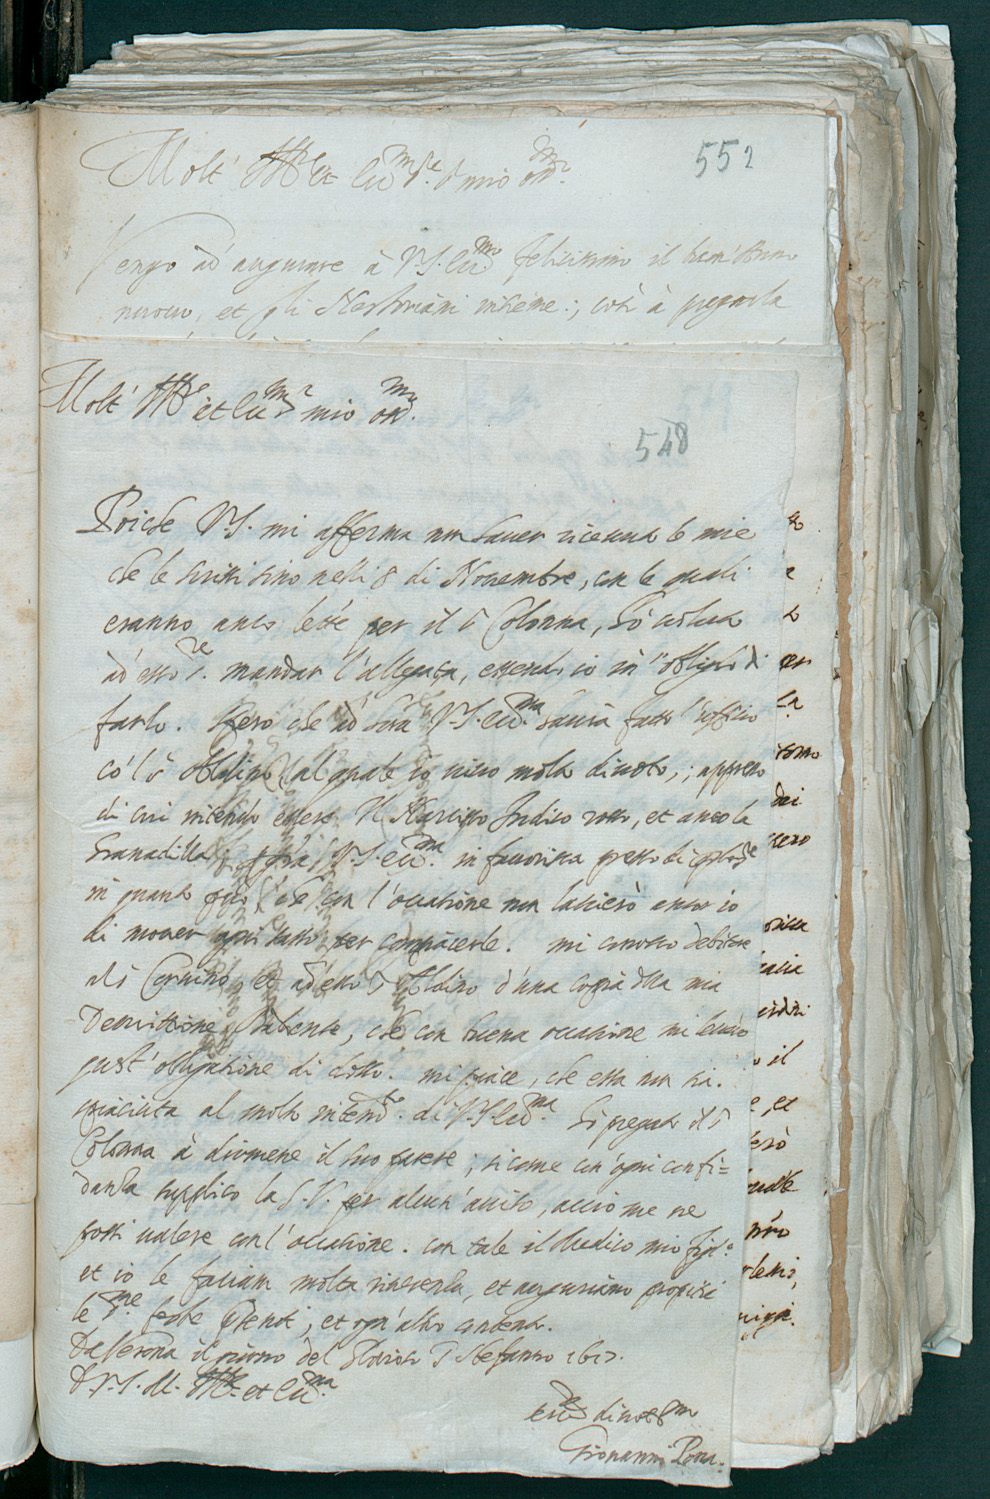 552
Molt' Ill.re et Ecc.mo S.re S. mio oss.mo
Vengo ad' augurare à V.S. Ecc.ma felicissimo il Anno
nuovo, et gli insieme; così à pregarla
Molt' Ill.re et Ecc.mo S.r mio oss.mo
548
Poiche V.S. mi afferma non haver ricevuto le mie
che le scrissi sino nelli 8 di Novembre, con le quali
eranno anco lette per il S. Colonna, hò voluto
ad' esso S.re mandar l'allegata, essendo io in obligo di
farlo. Spero che V.S. Ecc.ma havrà fatto l'officio
co'l S. Aldino (al quale io vivo molto divoto,) appresso
di cui intendo essere Il Narcisso Indico rosso, et anco la
Granadilla; V.S. Ecc.ma mi favorisca presso di
in quanto può che con l'occasione non lascierò anco io
di mover ogni sasso per compiacerle. mi conosco debitore
al S. Corvino, et ad'esso S. Aldino d'una copia della mia
Descrittione Baldense, che con buona occasione mi
quest' obligatione di dosso. mi piace, che essa non sia
spiaciuta al molto intend.te di V.S. Ecc.ma hò pregato il S.
Colonna à dirmene il suo parere; sicome con' ogni confi=
danza supplico la S.V. per alcun' aviso, acciò me ne
possi valere con l'occasione. con tale il Medico mio figl.o
et io le faciam molta riverenza, et auguriamo propitie
le S.me feste presenti; et ogn'altro contento.
Da Verona il giorno del Glorioso S. Stefanno 1617.
D. V.S. M. Ill.re et Ecc.ma
divotiss.mo
Giovanni Pona.